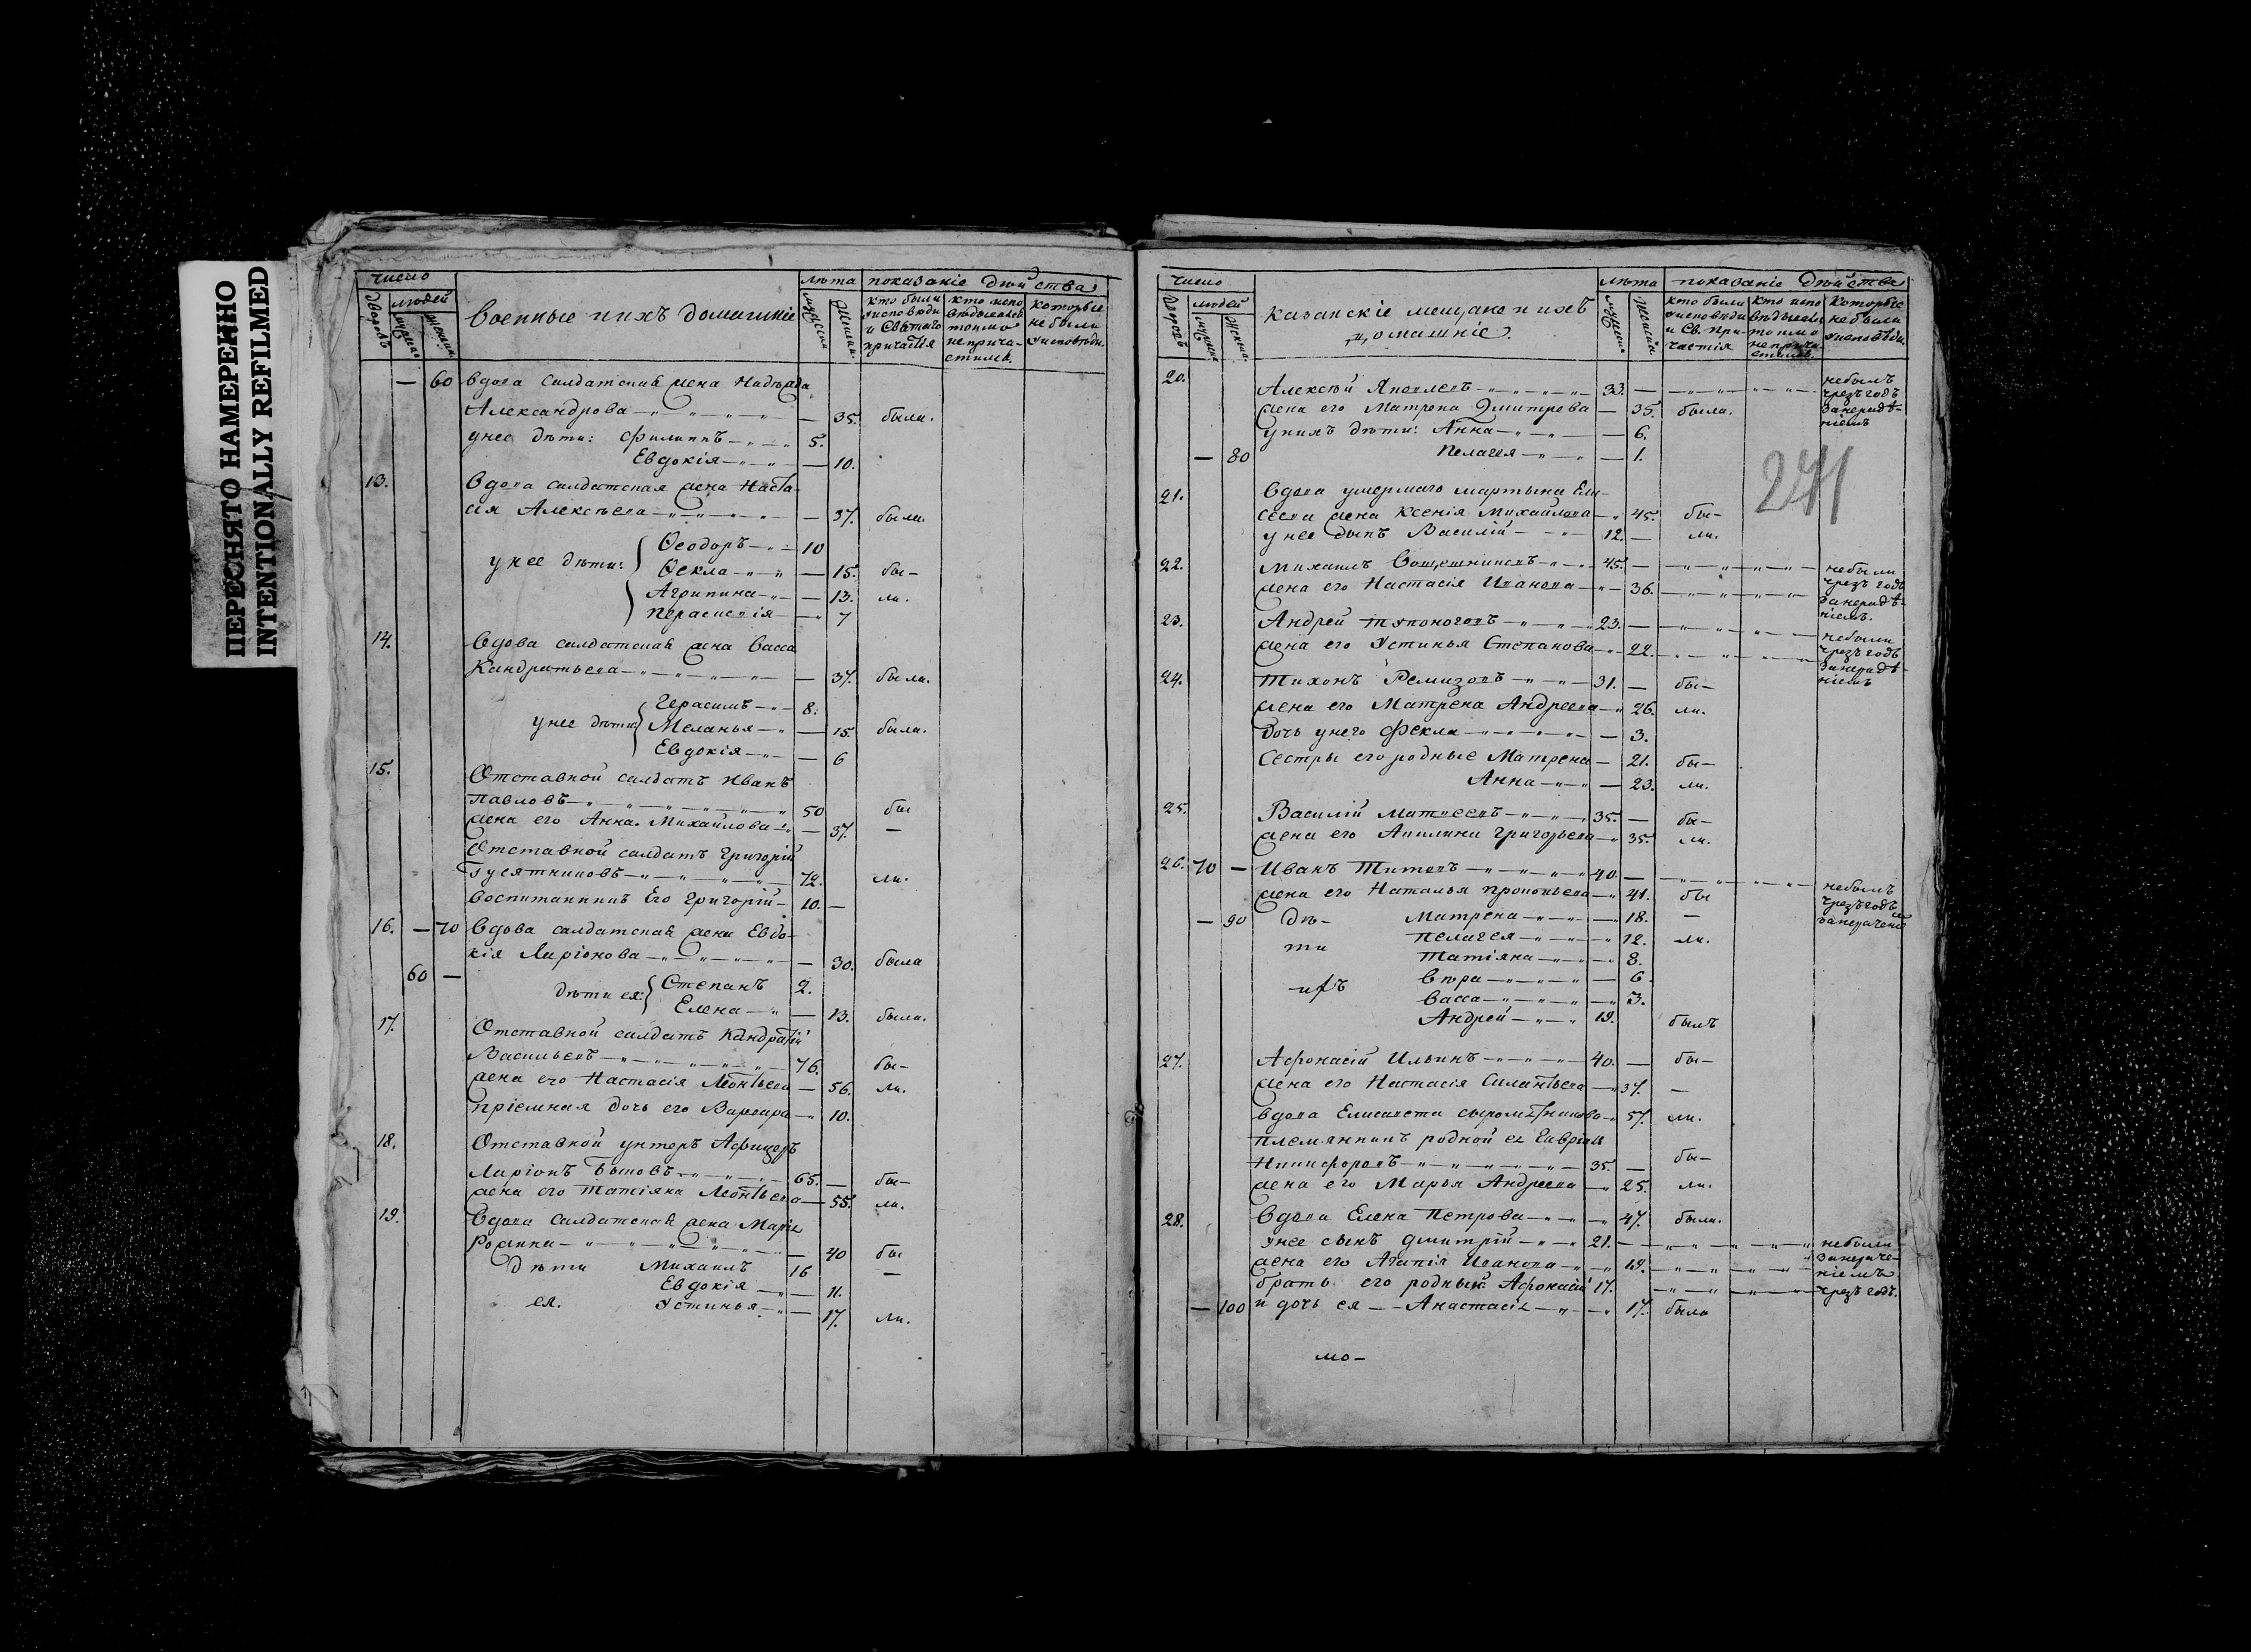 ПЕРЕСНЯТО НАМЕРЕННО
INTENTIONALLY REFILMED
число
лѣта показанiе дѣйства
дворовъ людей мужеска женска
Военные и ихъ домашнiе
мужеска женска
кто были у исповѣди и Святаго причастiя
кто исповѣдывался токмо не причастился
которые не были у исповѣди.
— 60 Вдова салдатская жена Надѣжда
Александрова — 35. была.
у нее дѣти: Филиппъ 5.
Евдокiя — 10.
13. Вдова салдатская жена Наста-
сiя Алексѣева — 37. были.
у нее дѣти: Ѳеодоръ 10
Ѳекла — 15. бы-
Агрипина — 13. ли.
Параскевiя — 7
14. Вдова салдатская жена Васса
Кандратьева — 37. была.
Герасимъ 8.
у нее дѣти: Меланья — 15 была.
Евдокiя — 6
15. Отставной салдатъ Иванъ
Павловъ 50 бы
жена его Анна Михайлова — 37. —
Отставной салдатъ Григорiй
Гусятниковъ 72. ли.
воспитанникъ Его Григорiй 10. —
16. — 70 Вдова салдатская жена Евдо-
кiя Ларiонова — 30. была
60 — дѣти ея: Степанъ 2.
Елена — 13. была.
17. Отставной салдатъ Кандратiй
Васильевъ 76. бы-
жена его Настасiя Леонтьева — 56. ли.
прiемная дочь его Варвара — 10.
18. Отставной унтеръ Афицеръ
Ларiонъ Быковъ 65. — бы-
жена его Татiяна Леонтьева — 55. ли.
19. Вдова салдатская жена Марiя
— 40 бы
дѣти Михаилъ 16 —
Евдокiя — 11.
ея. Устинья — 17. ли.
число
лѣта показанiе дѣйства
дворовъ людей мужеска женска
Казанскiе мещане и ихъ
домашнiе.
мужеска женска
кто были у исповѣди и Св. Причастiя
кто исповѣдывался токмо не причастился.
Которые не были у исповѣди.
20. Алексѣй Яковлевъ 33. — небылъ чрезъ годъ
жена его Матрена Дмитрева — 35. была. занерадѣ-
нiемъ
у нихъ дѣти: Анна — 6.
— 80 Пелагея — 1.
271
21. Вдова умершаго Мартына Ели-
сеева жена Ксенiя Михайлова — 45. бы-
у нее сынъ Василiй 12. — ли.
22. Михаилъ 45. — небыли
жена его Настасiя Иванова — 36. чрезъ годъ
занерадѣ-
нiемъ.
23. Андрей Тупоноговъ 23. — небыли
жена его Устинья Степанова — 22. чрезъ годъ
занерадѣ-
нiемъ
24. Тихонъ Ремизовъ 31. — бы-
жена его Матрена Андреева — 26. ли.
дочь унего Фекла — 3.
Сестры его родные Матрена — 21. бы-
Анна — 23. ли.
25. Василiй Матвеевъ 35. — бы-
жена его Акилина Григорьева — 35. ли.
26. 70 — Иванъ Титовъ 40. — небылъ
жена его Наталья Прокопьева — 41. бы чрезъ годъ
— 90 дѣ- Матрена — 18. —
ти Пелагея — 12. ли.
Татiяна — 8.
ихъ Вѣра — 6.
Васса — 3.
Андрей 19. былъ
27. Афонасiй Ильинъ 40. — бы-
жена его Настасiя Силантьева — 37. —
вдова Елисавета Сыромятникова — 57. ли.
племянникъ родной ея Гаврiла
Никифоровъ 35. — бы-
жена его Марья Андреева — 25. ли.
28. Вдова Елена Петрова — 47. была.
унее сынъ Дмитрiй 21. — небыли
жена его Агапiя Иванова — 19.
братъ его родный Афонасiй 17. чрезъ годъ.
— 100 и дочь ея — Анастасiя — 17. была
мо-